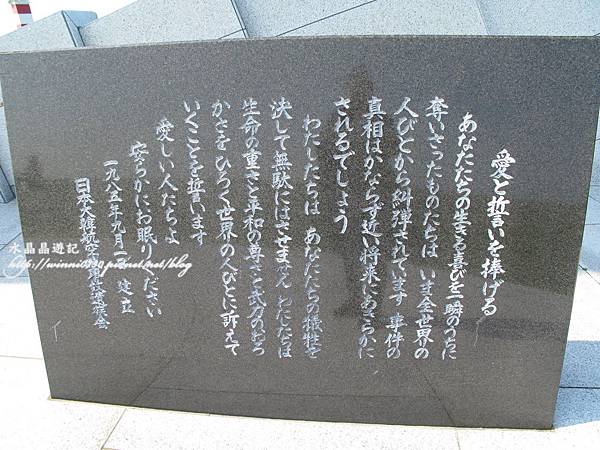 愛と誓いを捧げる
あなたたちの生きる喜びを一瞬のうちに
奪いさったものたちは いま全世界の
人びとから糾弾されています 事件の
真相はかならず近い将来にあきらかに
されるでしょう
わたしたちは あなたたちの犠牲を
決して無駄にはさせません わたしたちは
生命の重さと平和の尊さと武力のおろ
かさをひろく世界の人びとに訴えて
いくことを誓います
愛しい人たちよ
安らかにお眠りください
一九八五年九月一日 建立
日本大韓航空機事件遺族会
水晶晶遊記